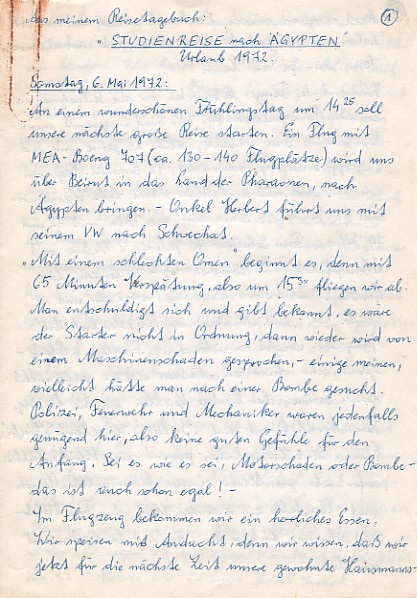 Aus meinem Reisetagebuch: 1
"STUDIENREISE nach ÄGYPTEN"
Urlaub 1972.
Samstag, 6. Mai 1972:
An einem wunderschönen Frühlingstag um 14 25 soll
unsere nächste große Reise starten. Ein Flug mit
MEA-Boeng 707 (ca. 130-140 Flugplätze) wird uns
über Beirut in das Land der Pharaonen, nach
Ägypten bringen. - Onkel Herbert führt uns mit
seinem VW nach Schwechat.
"Mit einem schlechten Omen" beginnt es, denn mit
65 Minuten Verspätung, also um 15 30 fliegen wir ab.
Man entschuldigt sich und gibt bekannt, es wäre
der Starter nicht in Ordnung, dann wieder wird von
einem Maschinenschaden gesprochen, - einige meinen,
vielleicht hätte man nach einer Bombe gesucht.
Polizei, Feuerwehr und Mechaniker waren jedenfalls
genügend hier, also keine guten Gefühle für den
Anfang. Sei es wie es sei, Motorschaden oder Bombe -
das ist auch schon egal! -
Im Flugzeug bekommen wir ein herrliches Essen.
Wir speisen mit Andacht, denn wir wissen, daß wir
jetzt für die nächste Zeit unsere gewohnte Hausmanns-